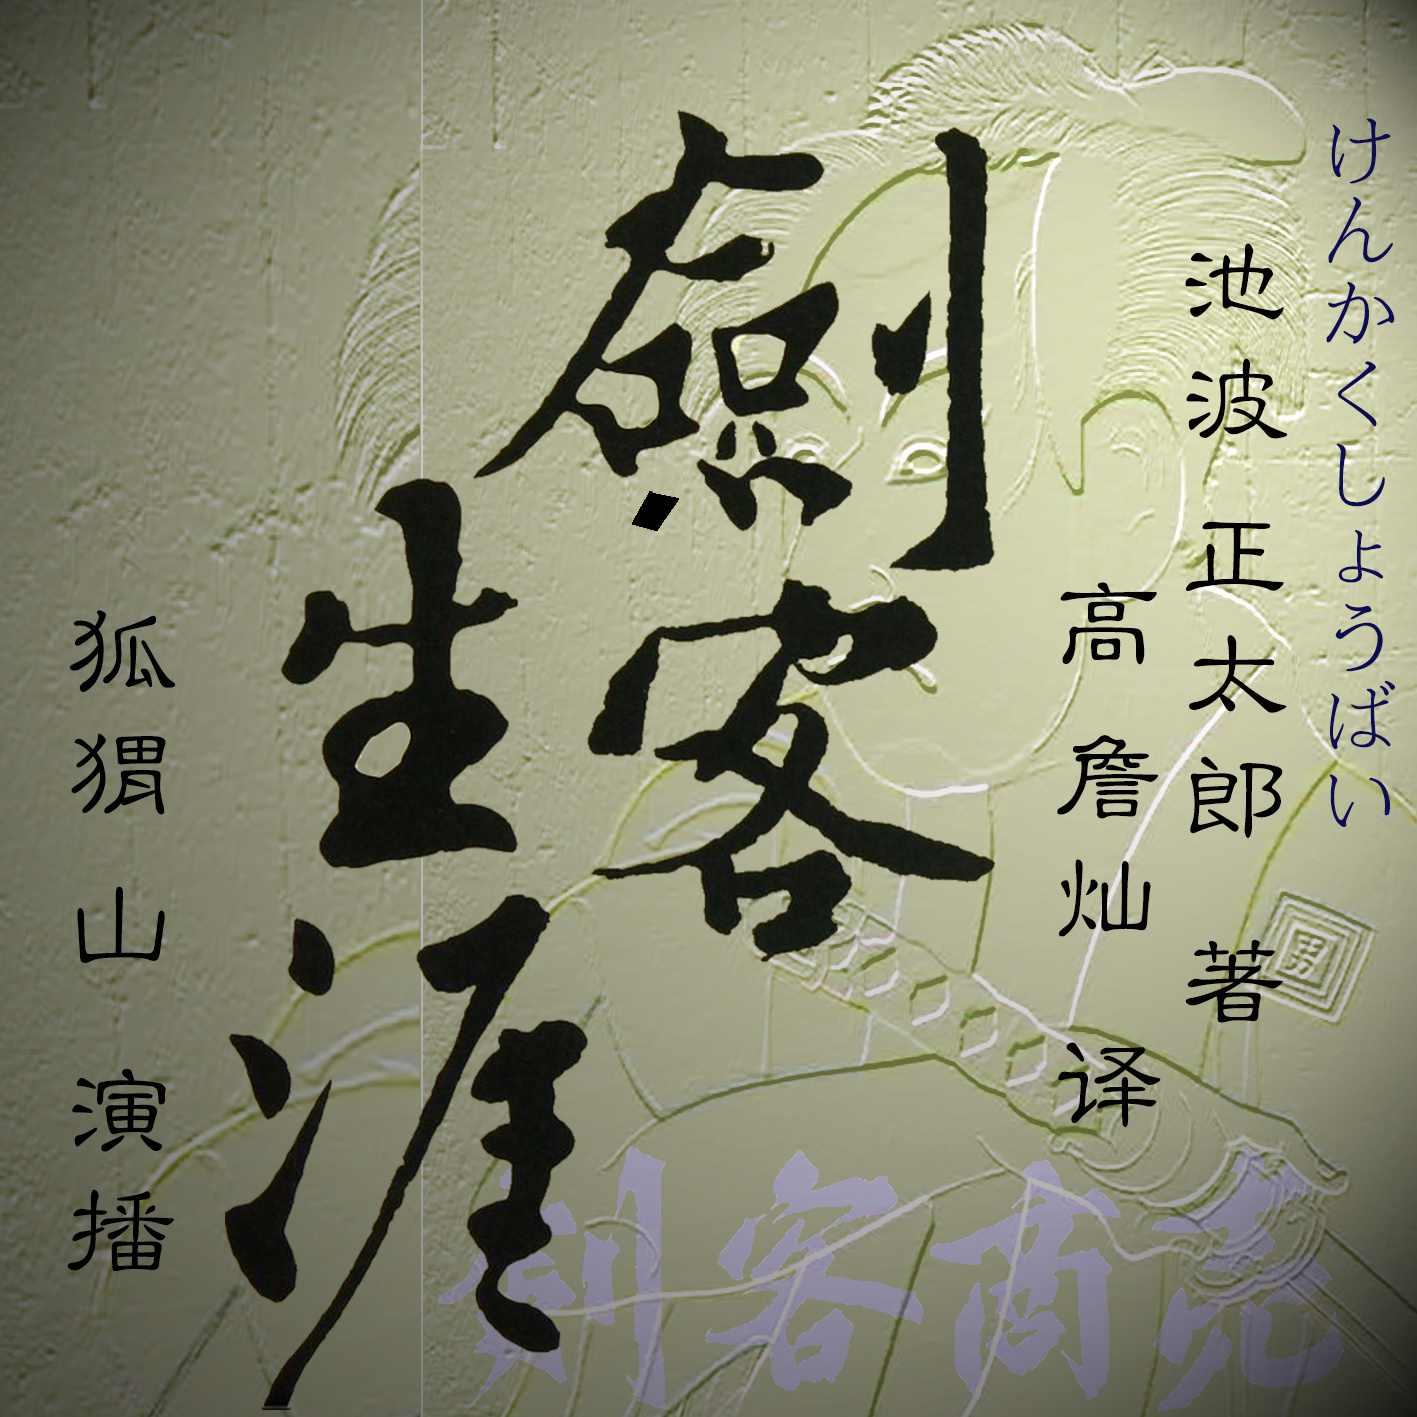 けんかくしょうばい
池波正太郎 著
高詹灿 译
劍客
生涯
狐猬山 演播
剣客商売
男